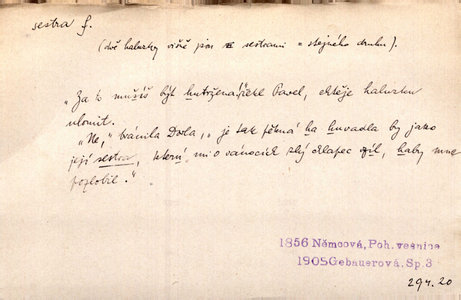 sestra f.
(dvě haluzky višně jsou sestrami = stejného druhu).
„Za to musíš být utržena," řekl Pavel, chtěje haluzku
ulomit.
„Ne," bránila Dorla, „je tak pěkná a uvadla by jako
její sestra, kterou mi o vánocích zlý chlapec vzal, aby mne
pozlobil."
1856 Němcová, Poh. vesnice
1905 Gebauerová, Sp. 3
294.20